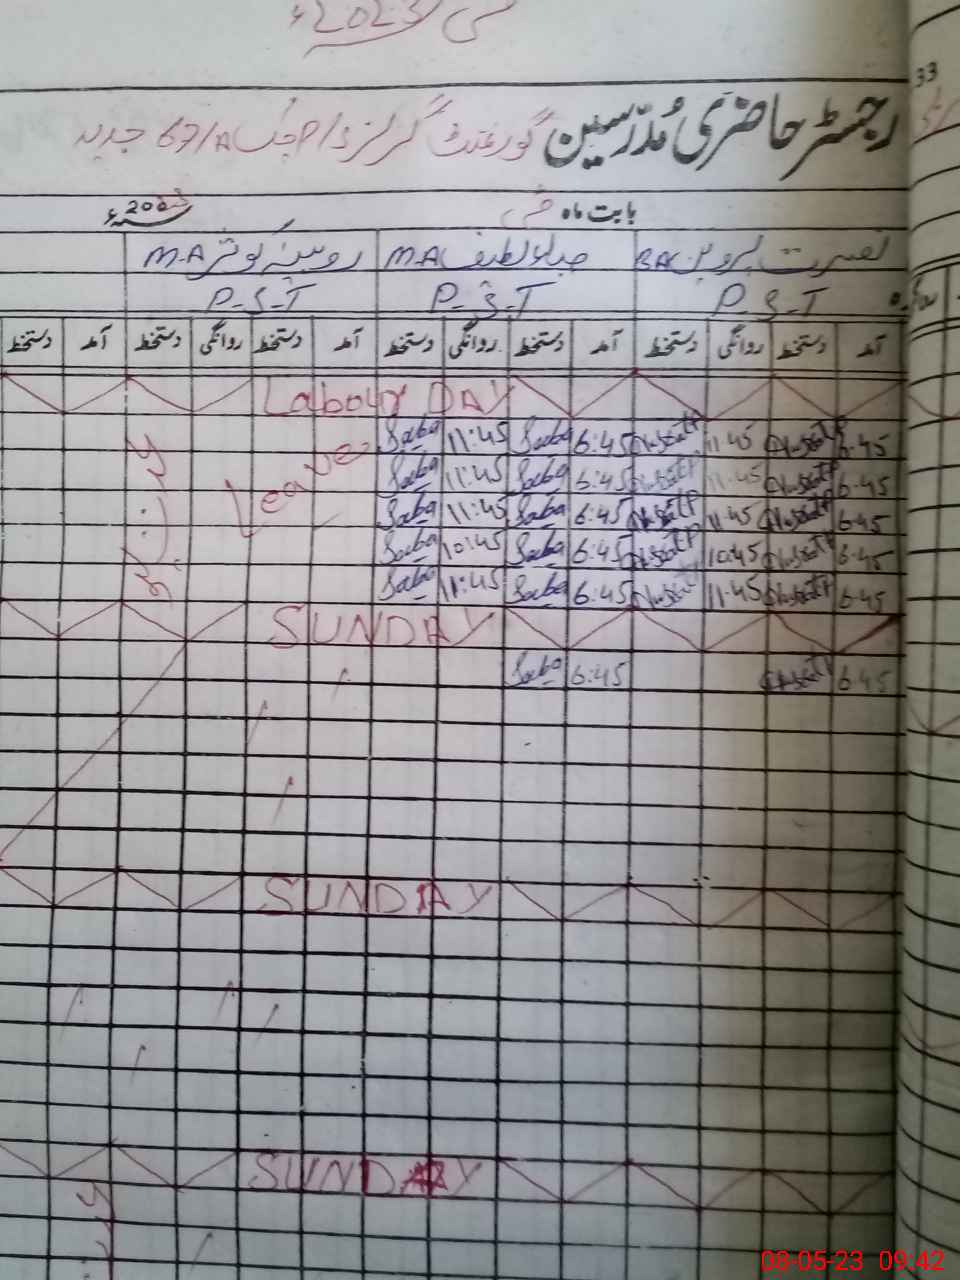 مئی 2023ء
33
رجسٹر حاضری مُدرّسین گورنمنٹ گرلز پ/اسکول 67/A جدید
بابت ماہ مئی 2023ء
نصرت پروین BA صباء لطیف M.A روبینہ کوثر M.A
P-S-T P-S-T P-S-T
روانگی
آمد دستخط روانگی دستخط آمد دستخط روانگی دستخط آمد دستخط روانگی دستخط آمد دستخط
Labour DAY
6:45 11:45 6:45 Saba 11:45 Saba Leave
6:45 11:45 6:45 Saba 11:45 Saba
6:45 11:45 6:45 Saba 11:45 Saba
6:45 10:45 6:45 Saba 10:45 Saba
6:45 11:45 6:45 Saba 11:45 Saba
SUNDAY
6:45 6:45 Saba
SUNDAY
SUNDAY
08-05-23 09:42